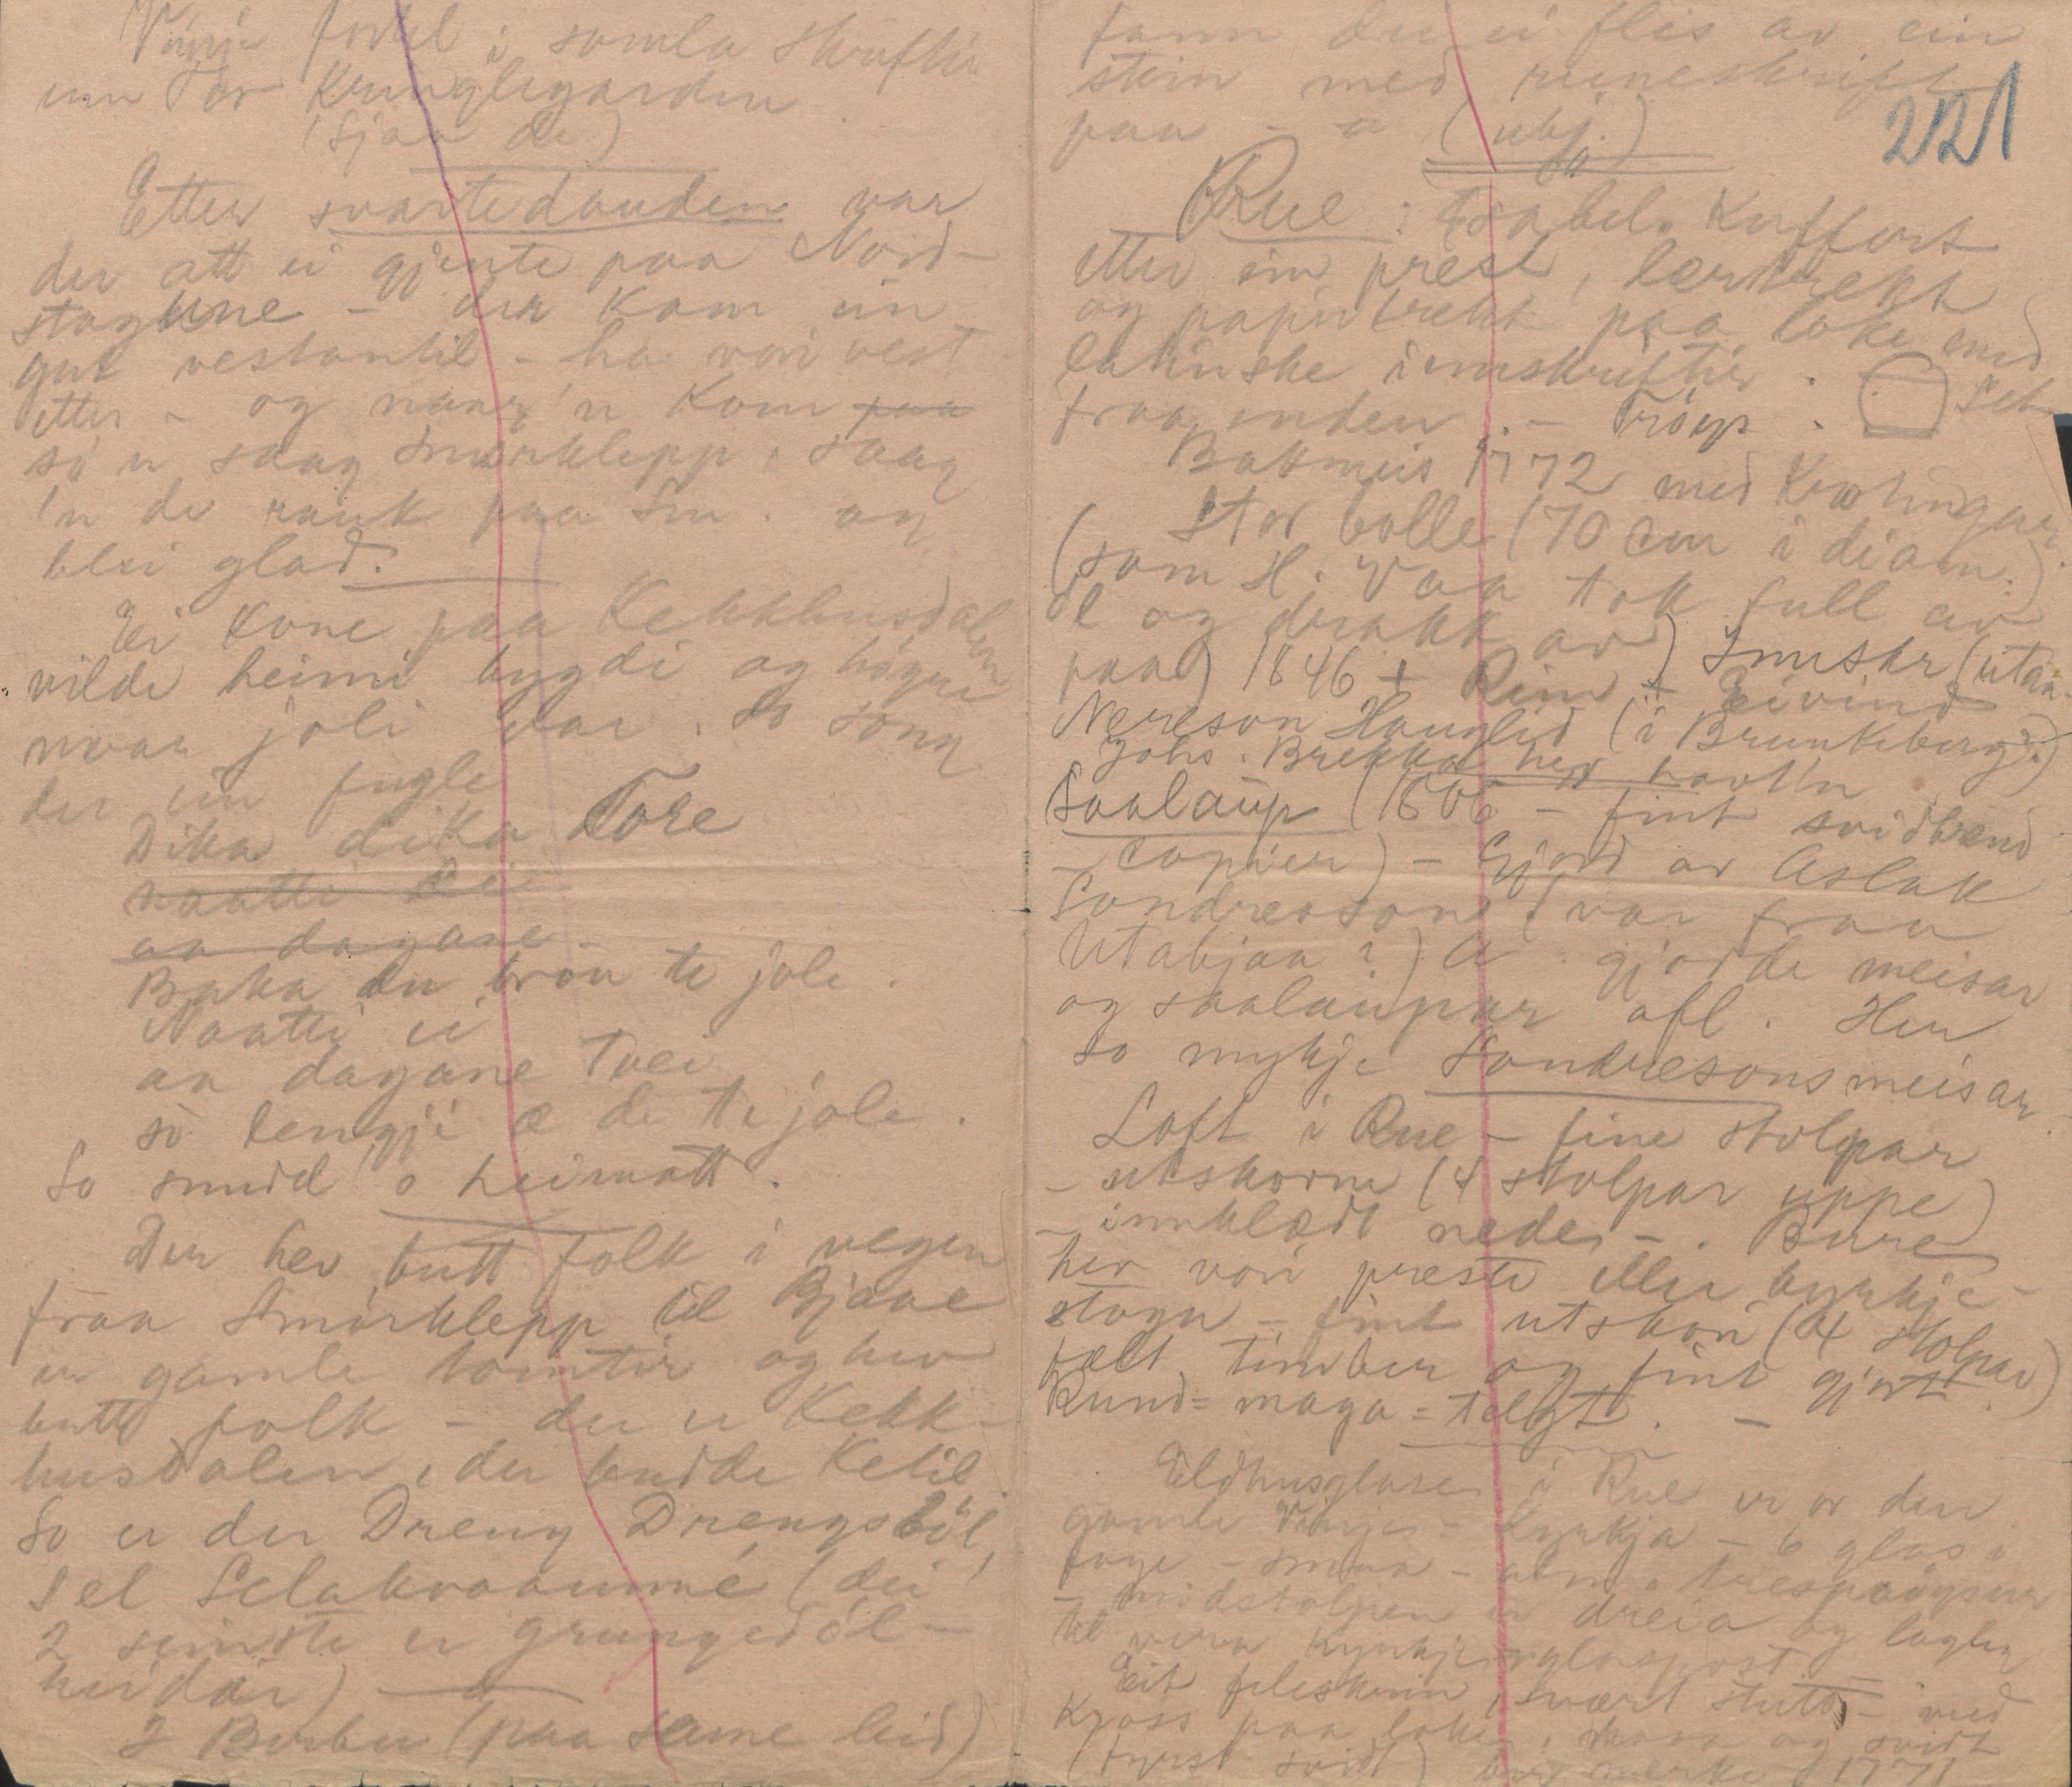 Vinje fortel i samla skrifter
um Tor Krunglegarden
(Sjaa de)
Etter svartedauden var
der att ei gjente paa Nord-
stogune - der kom ein
gut vestantil - ha vori vest
etter - og naar 'n kom paa
so 'n saag Smørklepp, saag
'n de rauk paa Sm. og
blei glad.
Ei kone paa Kekkhusdalen
vilde heim i bygdi og høyre
naar joli var. So song
der ein fugle
Dika dika Tore
naatti ei
aa dagane
Baka du brou te jole.
Naatti ei
aa dagane tvei
so lengji æ de te jole.
So snudd 'o heimatt.
Der hev butt folk i vegen
fraa Smørklepp til Bjaae
er gamle tomtir og hev
butt folk - der er Kekk-
husdalen, der budde Ketil
So er der Dreng Drengsbøl,
Sel Selakvaanne (dei
2 seinste er grungedøl-
heidar)
2 Berber (paa same leid)
fann du ei flis av ein
stein med runeskrift
paa - a (ubj.)
221
Rue : Isabels Kuffert
etter ein prest, lærtrekt
og papirtrekt paa loke med
latinske innskriftir.
fraa enden. - Trøys.
Bakmeis 1772 med Krotingar
Stor bolle (70 cm i diam.)
(som H. Vaa tok full av
øl og drakk av) Innskr (utan
paa) 1846 + Rim + Eivind
Nereson Hauglid (i Brunkeberg?)
Johs. Brekka hev havt'n
Saalaup (1806 - fint svidbrend
- copier) - Gjord av Aslak
Sondresson (var fraa
Utabjaa?) A gjorde meisar
og saalaupar ofl. Her
so mykje Sondresonsmeisar.
Loft i Rue - fine stolpar
- utskorne (4 stolpar uppe)
- innklædt nede - . Bure
hev vori preste eller kyrkje-
stogu - fint utskori (4 stolpar)
fælt timber og fint gjort.
Rund = maga = telgt. -
Eldhusglase i Rue er or den
gamle Vinjes = kyrkja - 6 glas i
- midstolpen er dreia og laglig
til vera kyrkjeglaspost
Eit feleskrin, svært stutt - med
Kross paa loke, skore og svidt
(fyrst svidt) 1771